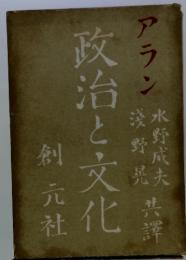 アラン
水野成夫
淺野晃
共譯
政治と文化
創元社